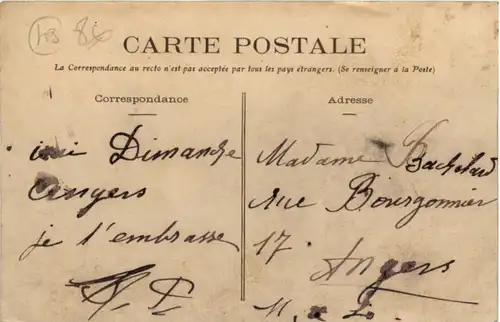 103 86
CARTE POSTALE
La Correspondance au recto n'est pas acceptée par tous les pays étrangers. (Se renseigner à la Poste)
Correspondance
Dimanche
Angers
je t'embrasse
Adresse
Madame Bachelard
rue Bourgonnier
17
Angers
M. & L.